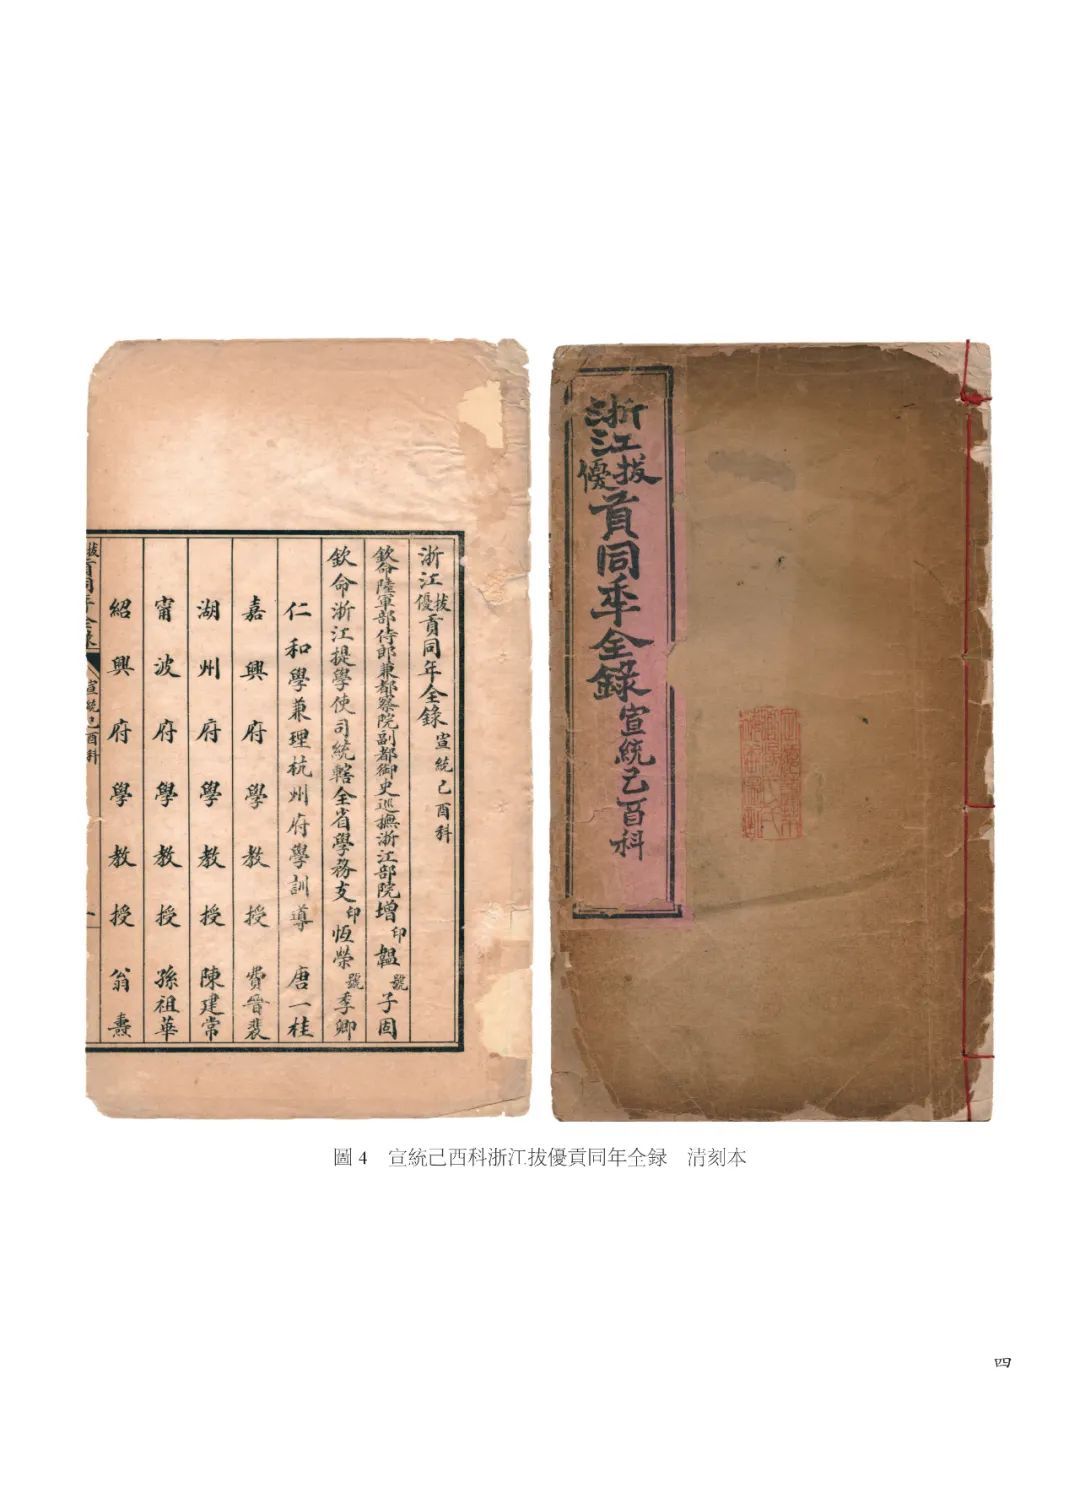 浙江拔優貢同秊全錄 宣統己酉科
浙江拔優貢同年全錄 宣統己酉科
欽命陸軍部侍郎兼都察院副都御史巡撫浙江部院增 印韞 號子固
欽命浙江提學使司統轄全省學務支 印恆榮 號季卿
仁和學兼理杭州府學訓導 唐一桂
嘉興府學教授 費晉裴
湖州府學教授 陳建常
甯波府學教授 孫祖華
紹興府學教授 翁燾
拔貢同年全錄 宣統己酉科 一
圖 4 宣統己酉科浙江拔優貢同年全録 清刻本
四